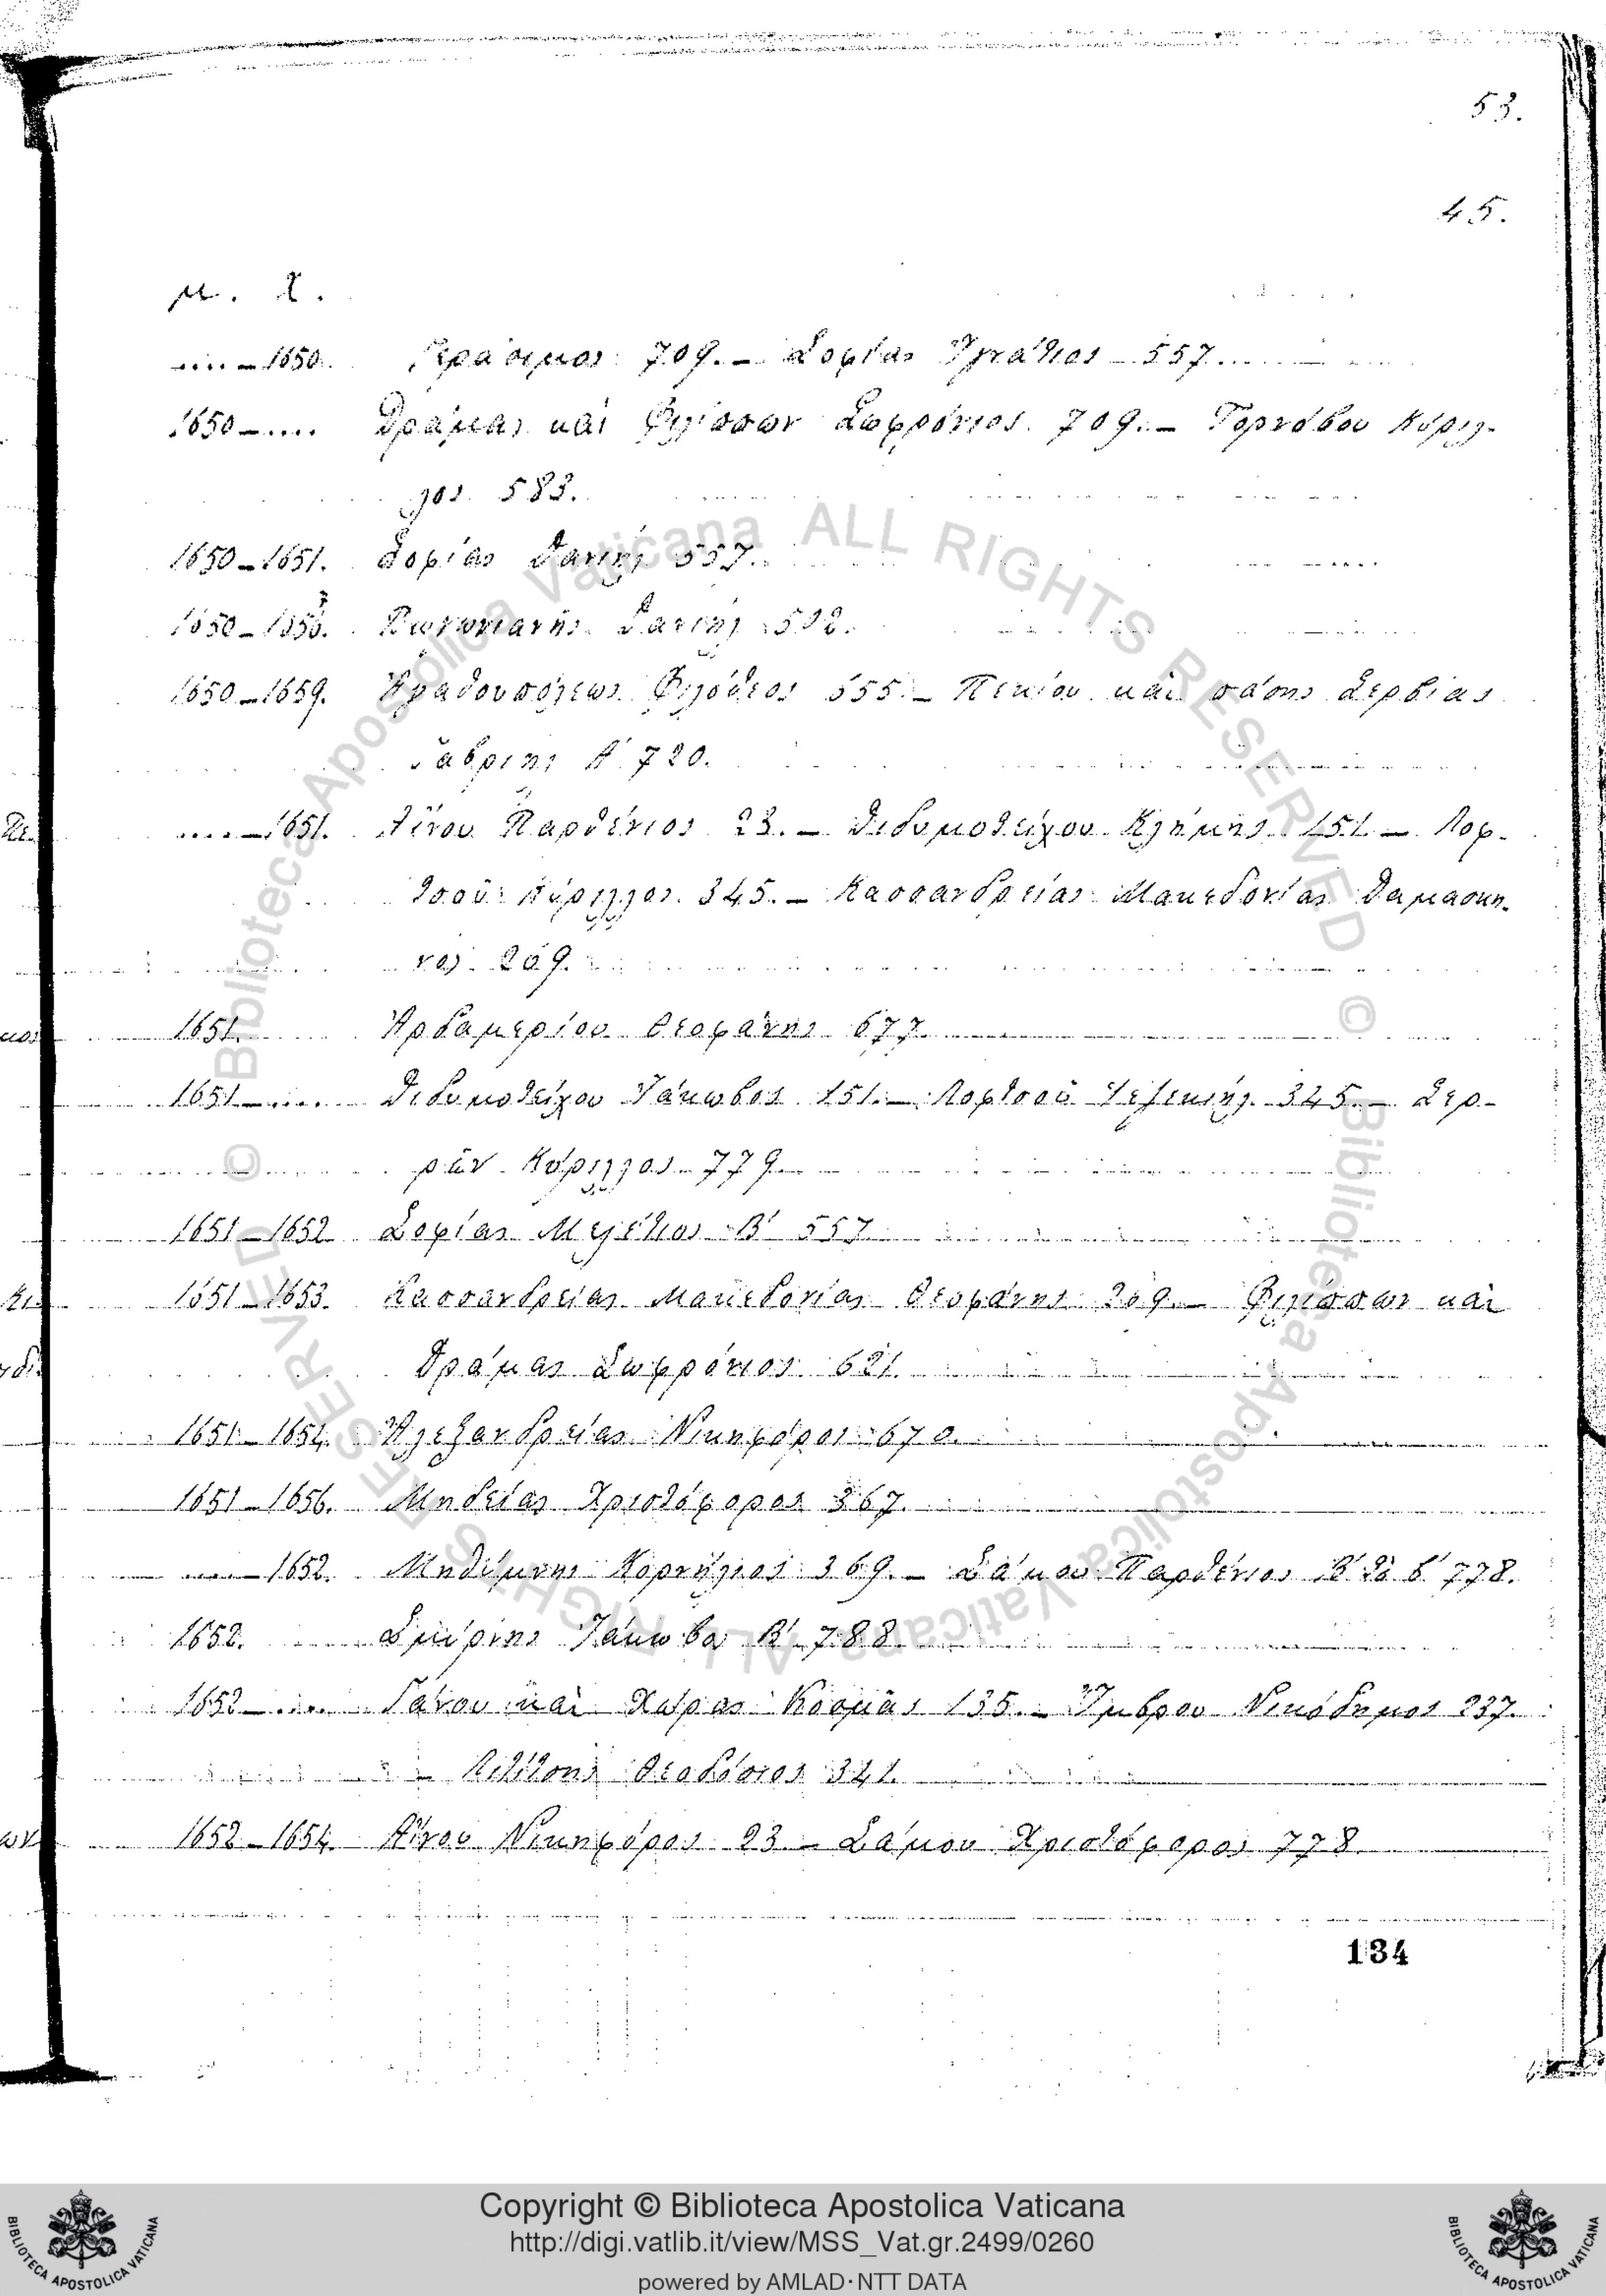 53.
45.
μ. Χ.
.... – 1650. Γεράσιμος 709. – Σοφίας Ἰγνάτιος 557.
1650 – .... Δράμας καὶ Φιλίππων Σωφρόνιος 709. – Τορνόβου Κύριλ-
λος 583.
1650 – 1651. Σοφίας Δανιὴλ 557.
1650 – Δανιὴλ 502.
1650 – 1659. Ἀγαθουπόλεως Φιλόθεος 555. – Πεκίου καὶ πάσης Σερβίας
Γαβριὴλ Α΄ 720.
.... – 1651. Αἴνου Παρθένιος 23. – Διδυμοτείχου Κλήμης 151. – Λοφ-
τσοῦ Κύριλλος 345. – Κασσανδρείας Μακεδονίας Δαμασκη-
νὸς 269.
1651. Ἀρδαμερίου Θεοφάνης 677.
1651 – .... Διδυμοτείχου Ἰάκωβος 151. – Λοφτσοῦ Ἰεζεκιὴλ 345. – Σερ-
ρῶν Κύριλλος 779.
1651 – 1652 Σοφίας Μελέτιος Β΄ 557
1651 – 1653. Κασσανδρείας Μακεδονίας Θεοφάνης 269. – Φιλίππων καὶ
Δράμας Σωφρόνιος 621.
1651 – 1654. Ἀλεξανδρείας Νικηφόρος 670.
1651 – 1656. Μηδείας Χριστόφορος 367.
.... – 1652. Μηθύμνης Κορνήλιος 369. – Σάμου Παρθένιος Β΄ 778.
1652. Σμύρνης Ἰάκωβος Β΄ 788
1652 – .... Γάνου καὶ Χώρας Κοσμᾶς 135. – Ἴμβρου Νικόδημος 237.
– Λιτίτσης Θεοδόσιος 341.
1652 – 1654. Αἴνου Νικηφόρος 23 – Σάμου Χριστόφορος 778
134
© Biblioteca Apostolica Vaticana ALL RIGHTS RESERVED
© Biblioteca Apostolica Vaticana ALL RIGHTS RESERVED
Copyright © Biblioteca Apostolica Vaticana
http://digi.vatlib.it/view/MSS_Vat.gr.2499/0260
powered by AMLAD·NTT DATA
BIBLIOTECA APOSTOLICA VATICANA
BIBLIOTECA APOSTOLICA VATICANA